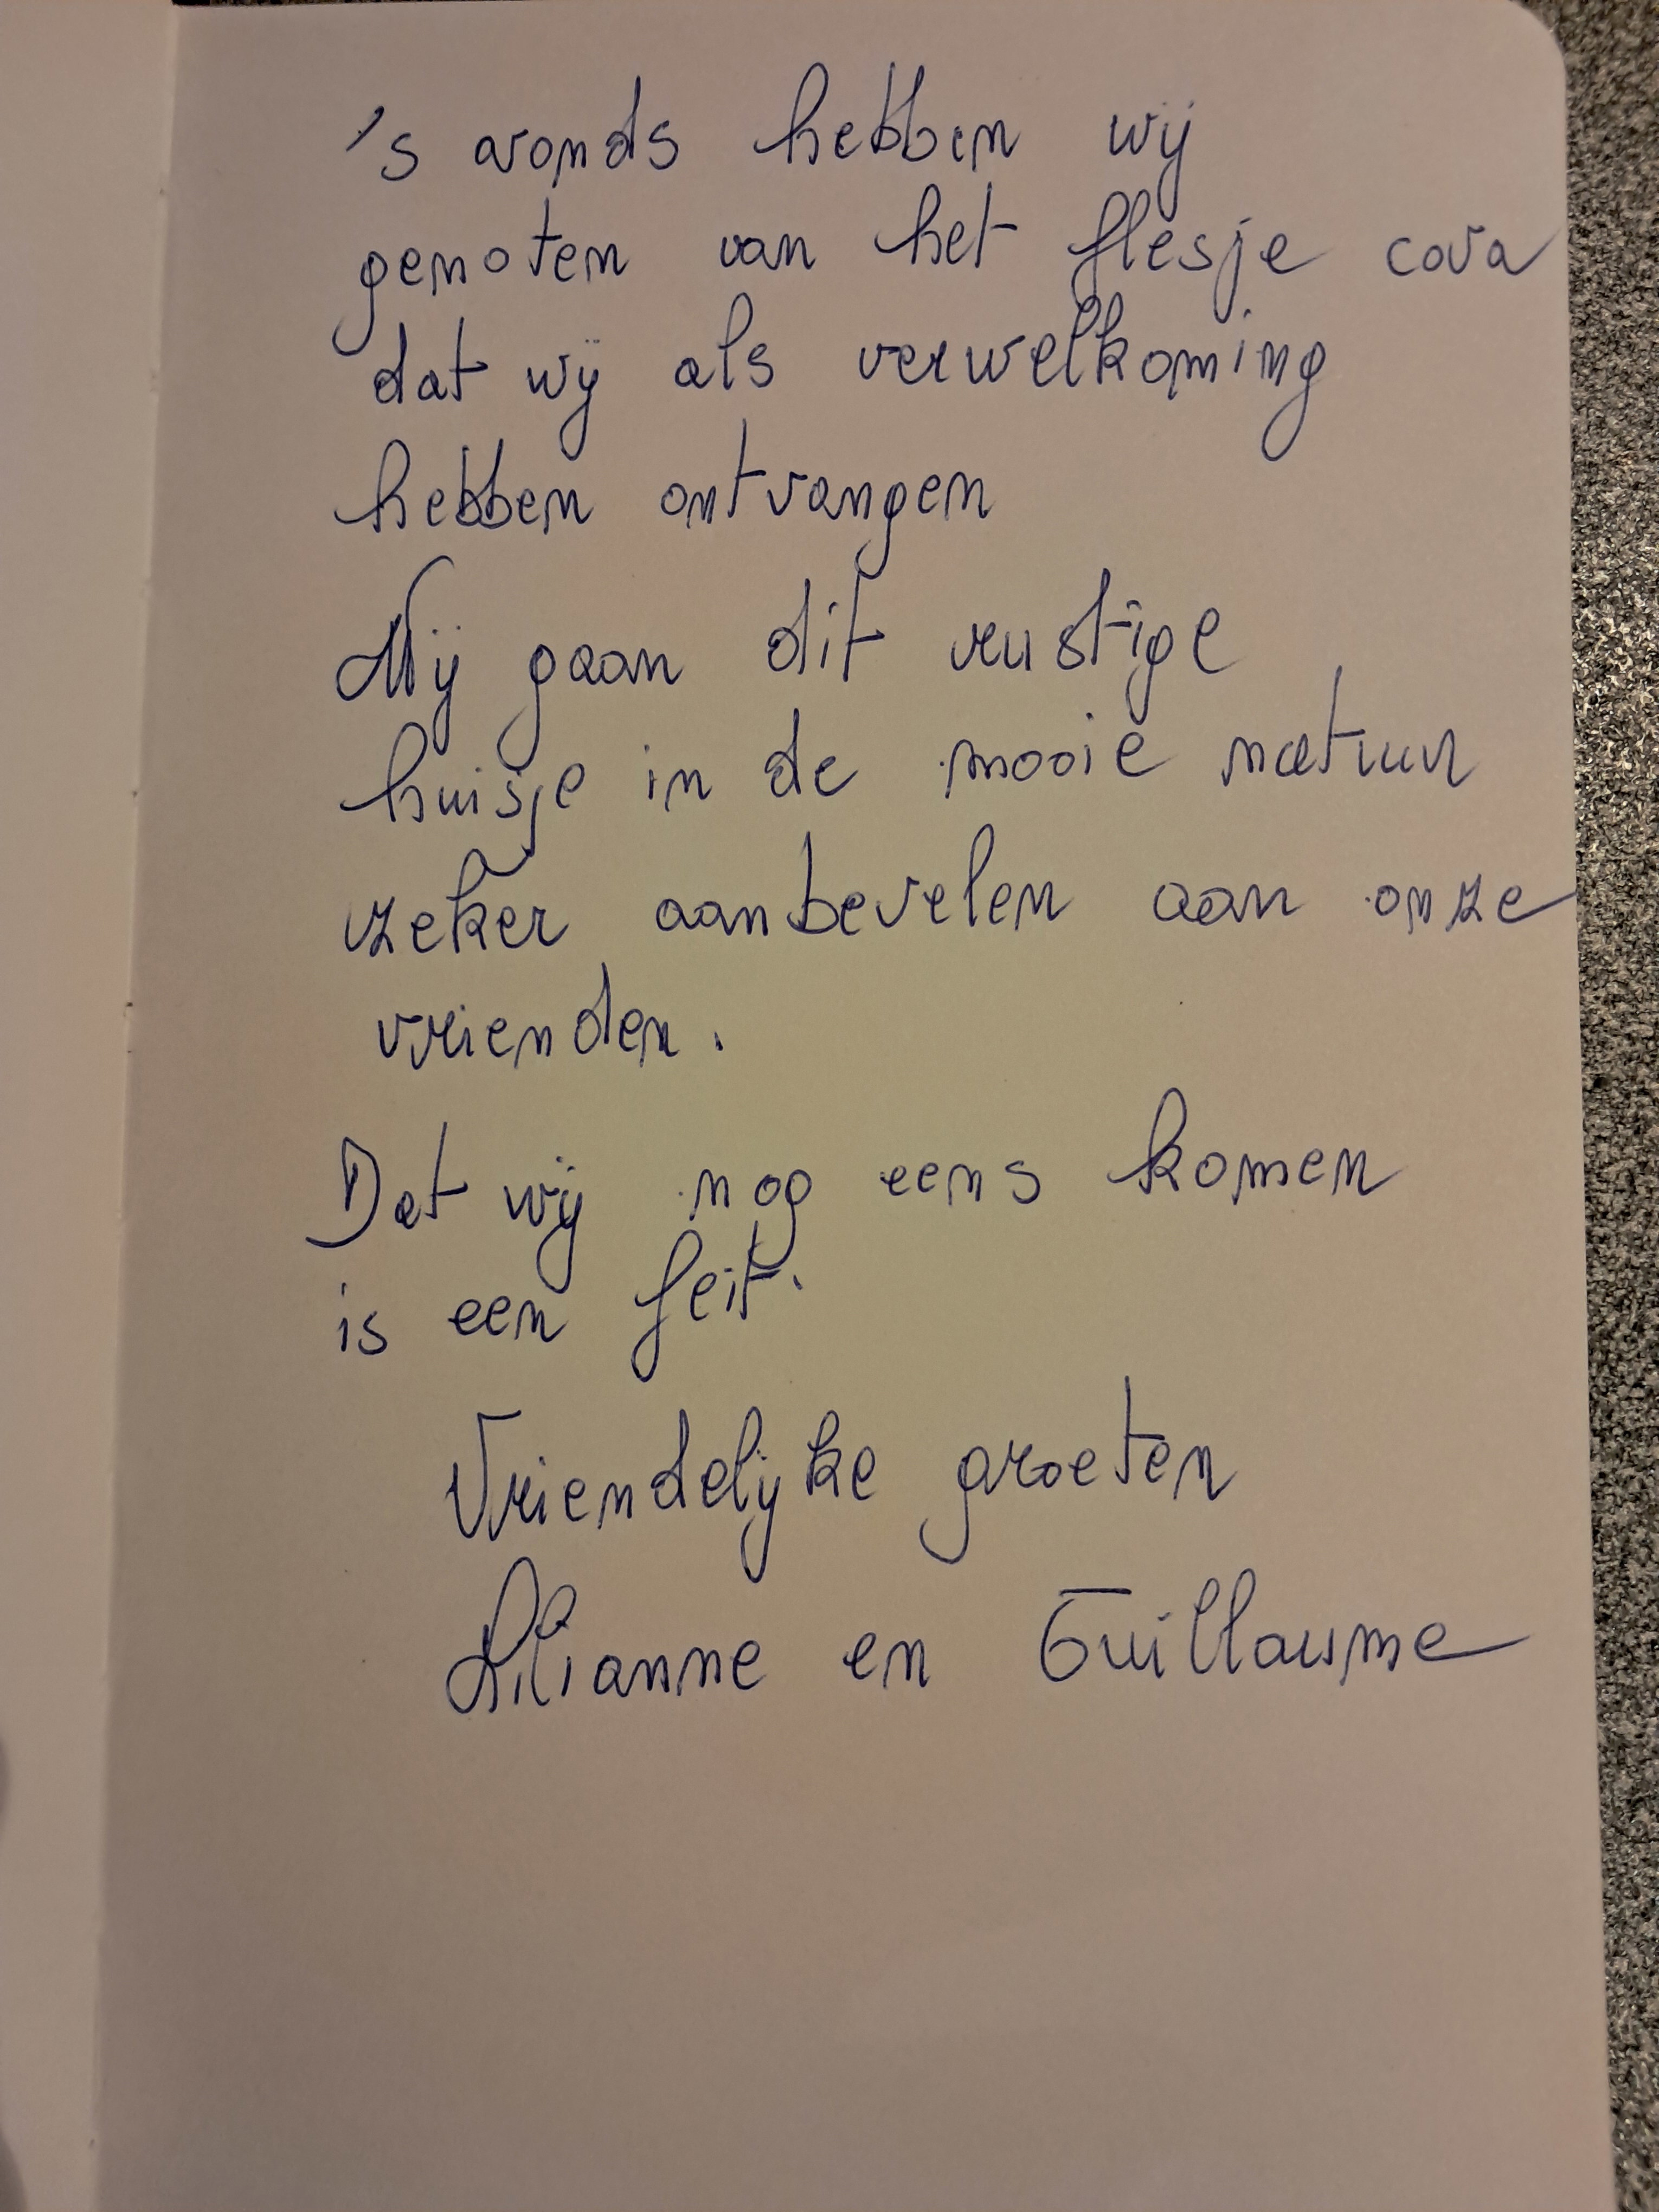 's avonds hebben wij
genoten van het flesje cava
dat wij als verwelkoming
hebben ontvangen
Wij gaan dit rustige
huisje in de mooie natuur
zeker aanbevelen aan onze
vrienden.
Dat wij nog eens komen
is een feit.
Vriendelijke groeten
Lilianne en Guillaume